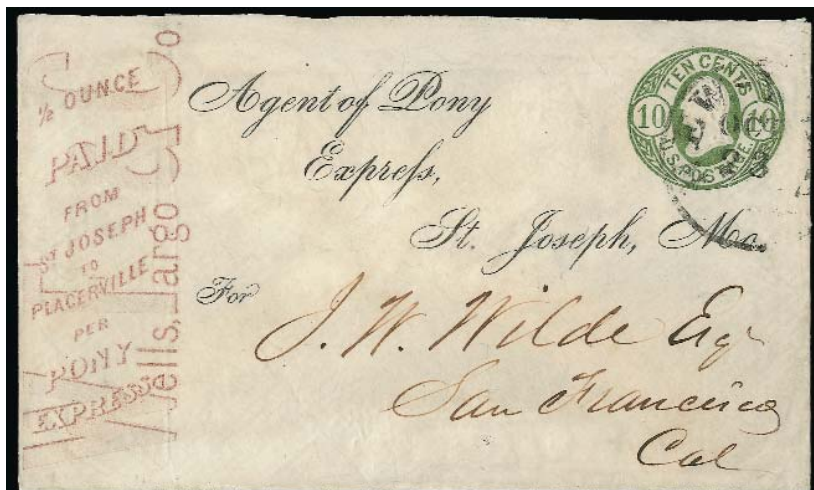 ½ OUNCE
PAID
FROM
ST JOSEPH
TO
PLACERVILLE
PER
PONY
EXPRESS
Wells, Fargo & Co
Agent of Pony
Express,
St. Joseph, Mo.
For
J. W. Wilde Esq
San Francisco
Cal
TEN CENTS
10 10
U.S. POSTAGE